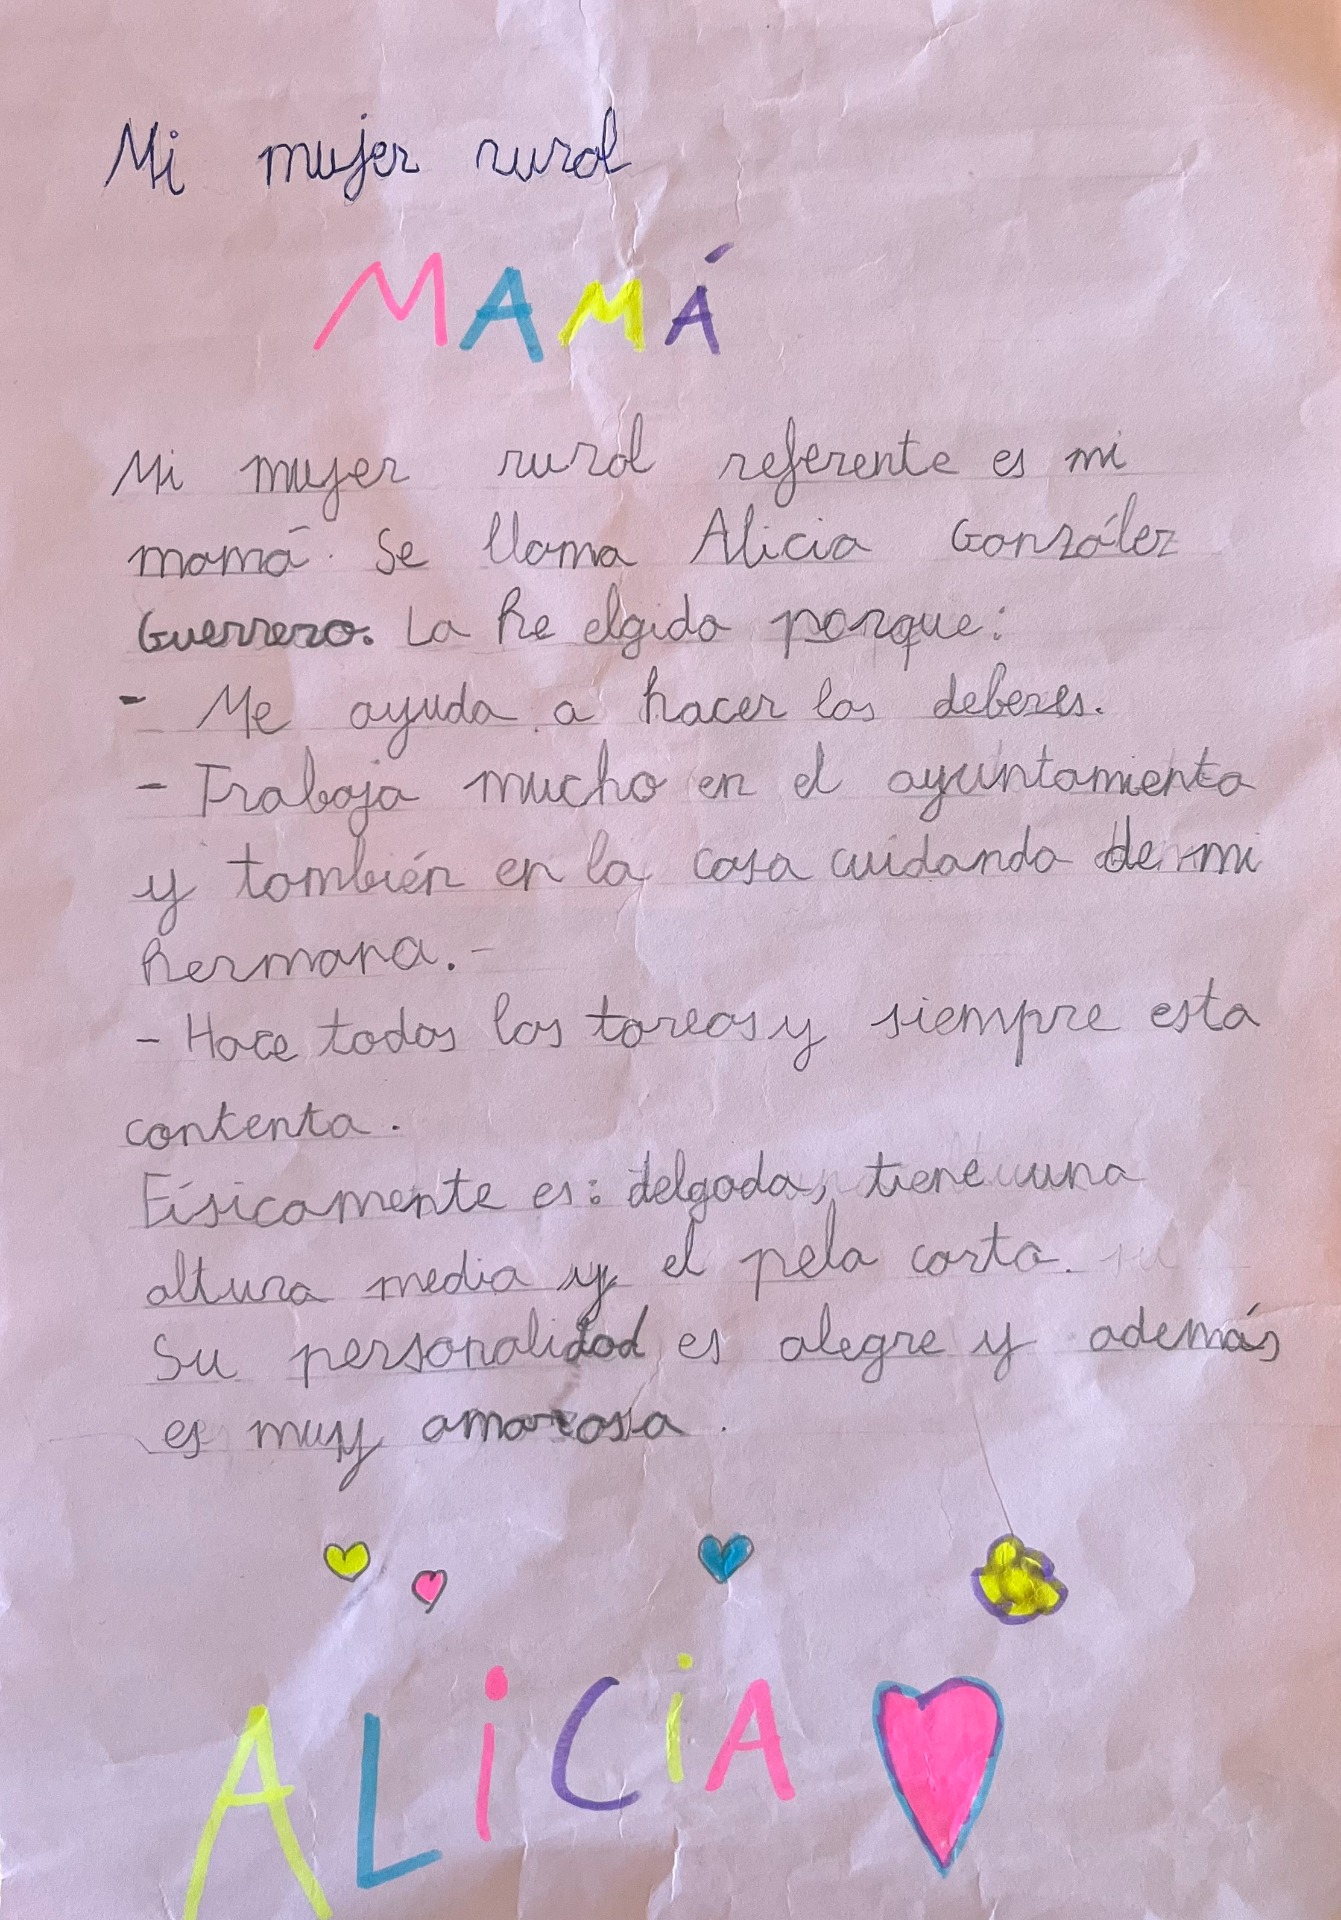 Mi mujer rural
MAMÁ
Mi mujer rural referente es mi
mamá. Se llama Alicia González
Guerrero. La he elgido porque:
- Me ayuda a hacer los deberes.
- Trabaja mucho en el ayuntamiento
y también en la casa cuidando de mi
hermana. -
- Hace todas las tareas y siempre esta
contenta.
Físicamente es: delgada, tiene una
altura media y el pelo corto.
Su personalidad es alegre y además
es muy amorosa.
ALiCiA